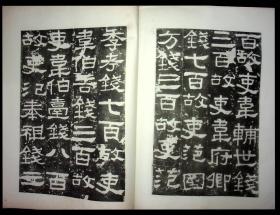 百故吏韋輔世錢
三百故吏韋府卿
錢七百故吏氾國
方錢三百故吏范
季考錢七百故吏
韋伯善錢三百故
吏韋伯臺錢八百
故吏氾奉祖錢三